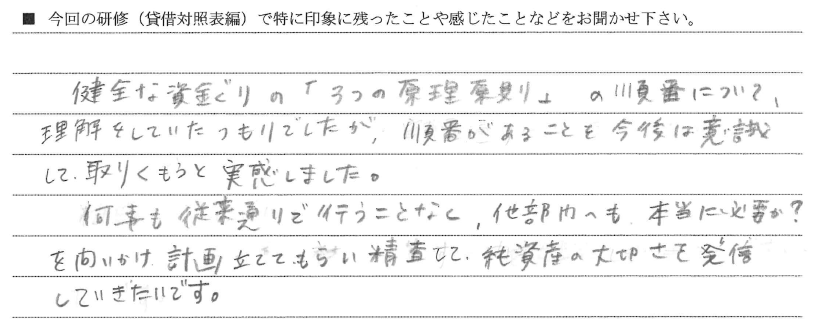 ■ 今回の研修（貸借対照表編）で特に印象に残ったことや感じたことなどをお聞かせ下さい。
健全な資金ぐりの「3つの原理原則」の順番について、
理解をしていたつもりでしたが、順番があることを今後は意識
して取りくもうと実感しました。
何事も従来通りで行うことなく、他部門へも本当に必要か?
を問いかけ計画立ててもらい精査して、純資産の大切さを発信
していきたいです。